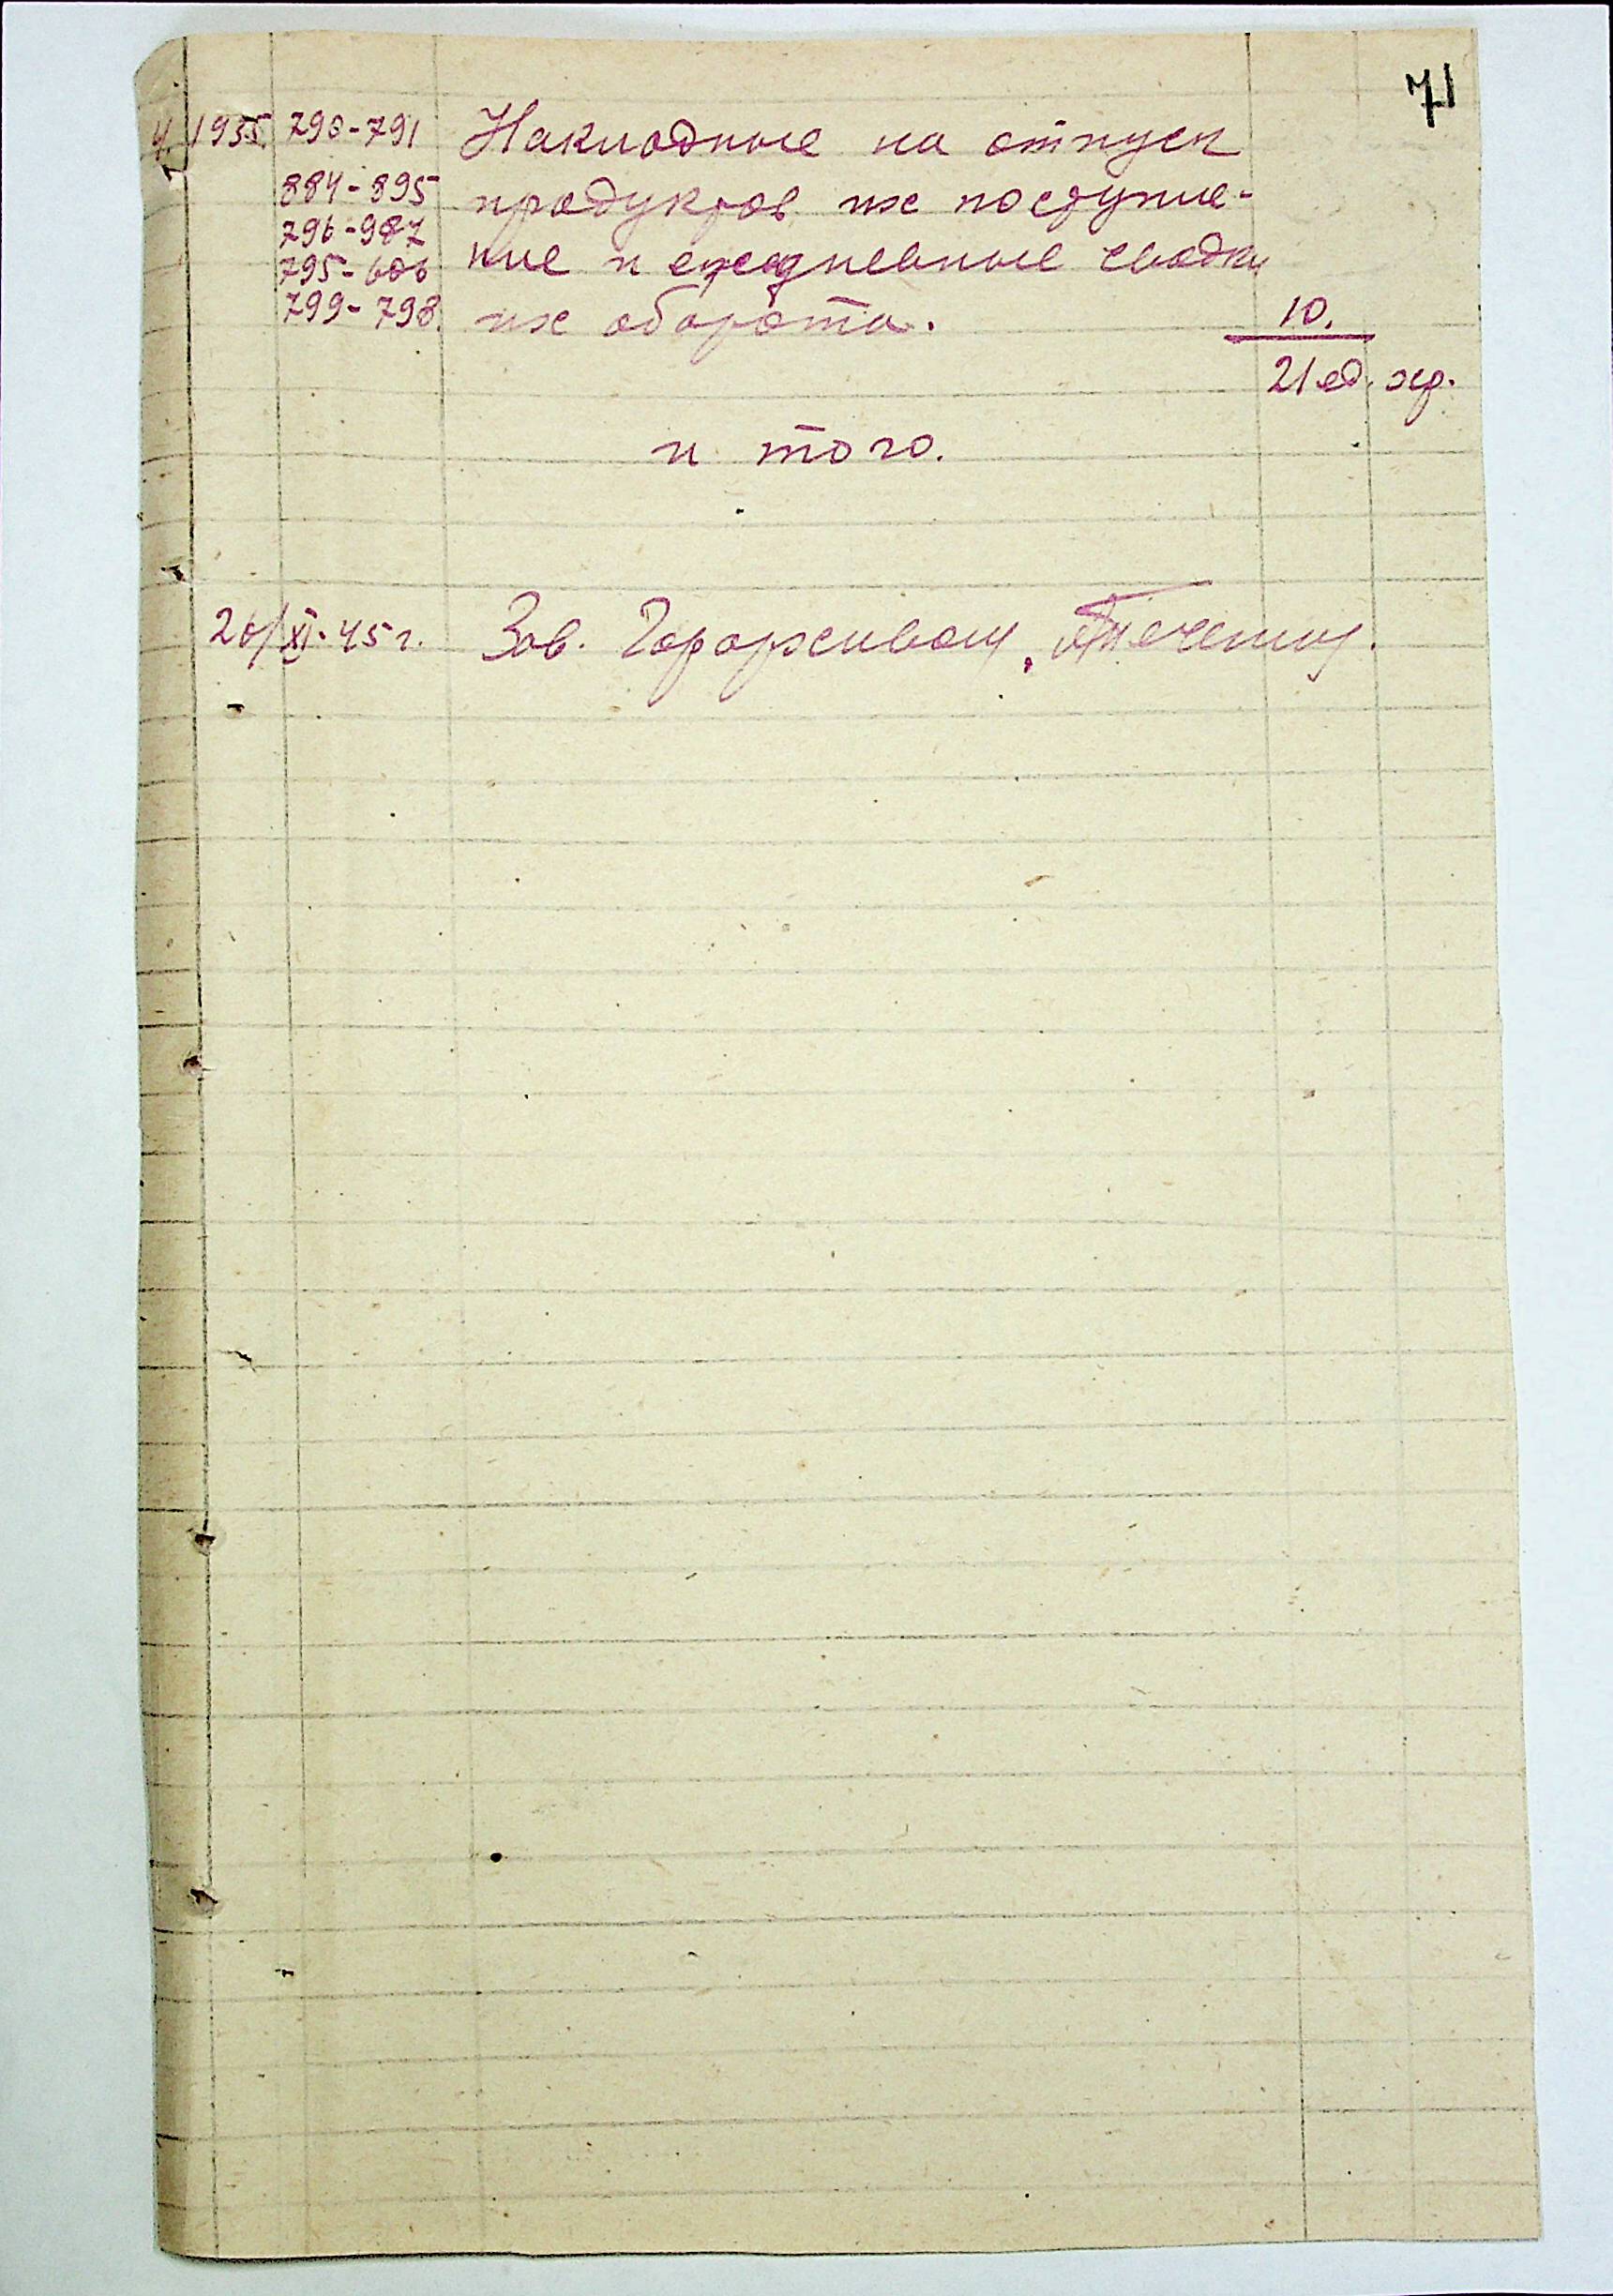 71
4. 1935. 790-791 Накладные на отпуск
884-895 продуктов их поступле-
796-987 ние и ежедневные сводки
795-606 их оборота.
799-798. 10.
21 ед. хр.
и того.
26/XI-45 г. Зав. Горархивом,